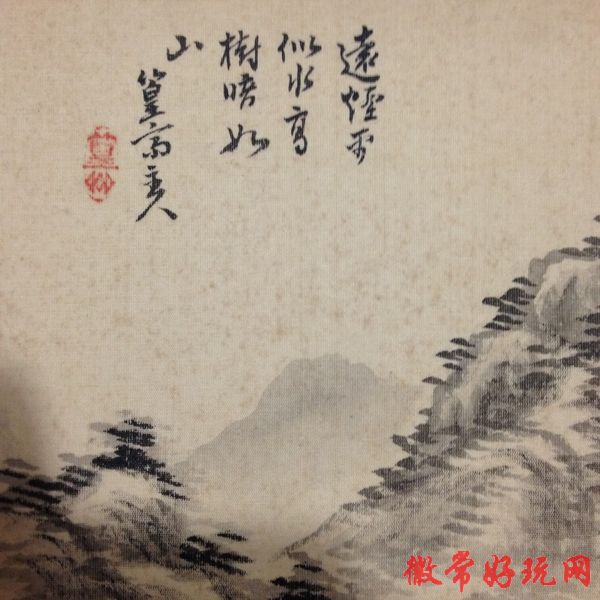 遠煙平
似水高
樹暗如
山
篁齋主人
徽常好玩网